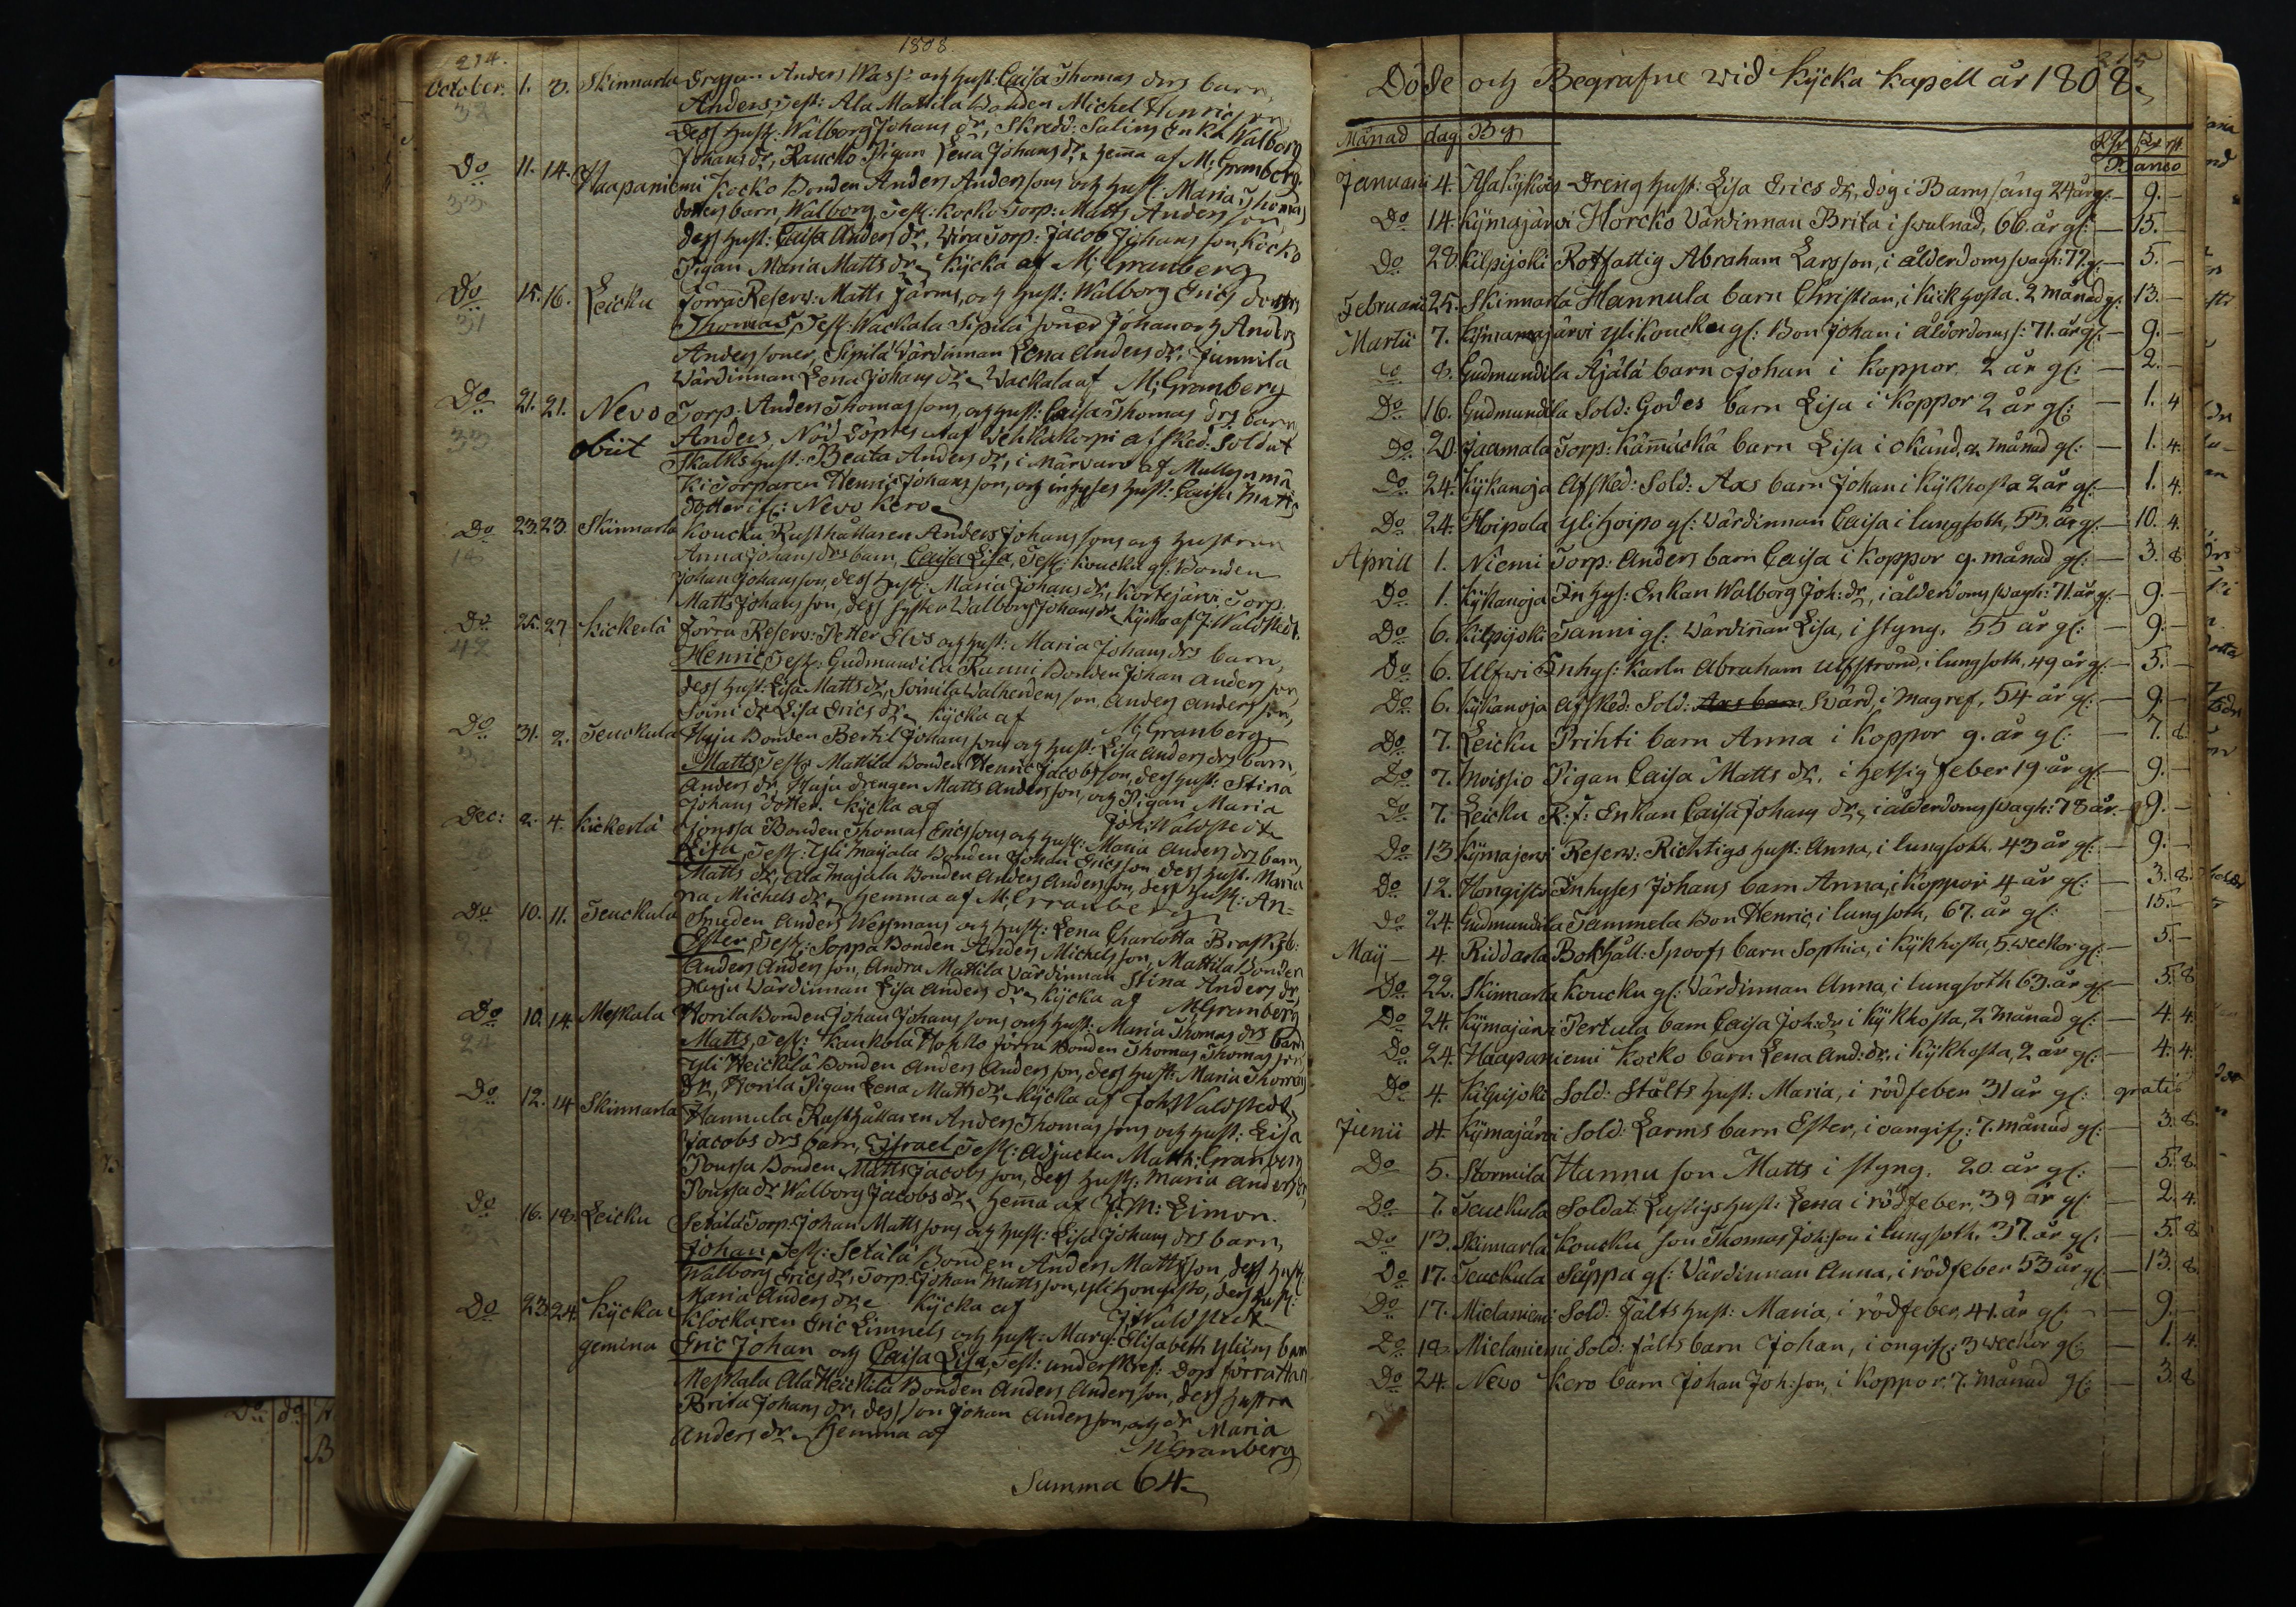 214.
1808.
October. 1. 3. Skinnarla Anders Wass: och hust: Caisa Thomas drs barn,
32 Anders, Test: Ala Mattila Bonden Michel Henricson,
dess hust: Walborg Johans dr, Skredd: Salins Enka Walborg
Johans dr, Raucko Pigan Lena Johans dr, hema af M: Granberg.
Do 11. 14. Haapaniemi Kocko Bonden Anders Anderssons och hust: Maria Thomas
33 dotters barn, Walborg, Test: Kocko Torp: Matts Andersson,
dess hust: Caisa Anders dr, Wira Torp: Jacob Johansson, Kocko
Pigan Maria Matts dr, Kycka af M: Granberg
Do 15. 16. Leicku förra Reserv: Matts Järms, och hust: Walborg Erics
31 Thomas, Test: Wackala Sipilä söner Johan och Anders
Anderssöner, Sipilä Wärdinnan Lena Anders dr, Junnila
Wärdinnan Lena Johans dr, Wackala af M: Granberg
Do 21. 21. Nevo Torp: Anders Thomassons, och hust: Caisa Thomas drs barn,
33 obiit Anders, Nöd döptes af Wehkakorpi afsked: Soldat
Skalks hust: Beata Anders dr, i närvaro af Mullynmä
ki Torparen Henric Johansson, och inhyses hust: Caisa Matts
dotter ifr: Nevo Kero
Do 23. 23. Skinnarla Koucku Rusthållaren Anders Johanssons och hustrun
Anna Johans drs barn, Caisa Lisa, Test: Koucku gl: Bonden
Johan Johansson, dess hust: Maria Johans dr, Kortejärvi Torp:
Matts Johansson, dess syster Walborg Johans dr Kycka af J: Waldstedt.
Do 25. 27 Kickerlä förra Reserv: Petter Elvs och hust: Maria Johans drs barn,
42 Henric, Test: Gudmundila Ranni Bonden Johan Andersson,
dess hust: Lisa Matts dr, Soinila Walhendens son Anders Andersson,
Soini dr Lisa Erics dr, Kycka af M: Granberg
Do 31. 2. Teuckula Haju Bonden Bertil Johanssons och hust: Lisa Anders drs barn,
Matts, Test: Mattila Bonden Henric Jacobsson, dess hust: Stina
Anders dr, Haju drengen Matts Andersson, och Pigan Maria
Johans dotter. Kycka af Joh: Waldstedt
Dec: 2. 4. Kickerlä Bonden Thomas Ericssons och hust: Maria Anders drs barn,
Lisa, Test: Yli Maijala Bonden Johan Ericsson, dess hust: Maria
Matts dr, Ala Majala Bonden Anders Andersson, dess hust: An=
na Michels dr, hemma af M: Granberg
Do 10. 11. Teuckula Smeden Anders Wessmans och hust: Lena Charlotta Brask sb:
Ester, Test: Soppa Bonden Anders Michelsson, Mattila Bonden
Anders Andersson, Andra Mattila Wärdinnan Stina Anders dr,
Haju Wärdinnan Lisa Anders dr, Kycka af M: Granberg
Do 10. 14. Meskala Horila Bonden Johan Johanssons och hust: Maria Thomas drs barn
Matts, Test: Kankola Hokko förra Bonden Thomas Thomasson,
Yli Heickilä Bonden Anders Andersson, dess hust: Maria Thomas
dr, Horila Pigan Lena Matts dr Kycka af Joh: Waldstedt
Do 12. 14 Skinnarla Hannula Rusthållaren Anders Thomassons och hust: Lisa
Jacobs drs barn, Israel, Test: Adjuncten Matth: Granberg
Poussa Bonden Matts Jacobsson, dess hust: Maria Anders dr,
Poussa dr Walborg Jacobs dr, hema af J: M: Limon.
Do 16. 18. Leicku Setälä Torp: Johan Mattssons och hust: Lisa Johans drs barn,
Johan, Test: Setälä Bonden Anders Mattsson, dess hust:
Walborg Erics dr, Torp: Johan Mattsson, Yli hongisto, dess hust:
Maria Anders dr Kycka af J: Waldstedt
Do 23. 24. Kycka Klockaren Eric Limnels och hust: Mary: Elisabeth Ylens barn
gemina Eric Johan och Caisa Lisa, Test: underskref: Dop förrättan
Meskala Ala Heickilä Bonden Anders Andersson, dess hustru
Brita Johans dr, dess son Johan Andersson, och dr Maria
Anders dr, Hemma af M: Granberg
Summa 64.
215
Döde och Begrafne wid Kycka Kapell år 1808.
Månad dag By
Banco
Januarii 4. Dreng hust: Lisa Erics dr, dog i Barnsäng 24 år gl: — 9. —
Do 14. Kymajärvi Horcko Wärdinnan Brita i swulnad, 66. år gl: — 15. —
Do 28. Kilpijoki Rotfattig Abraham Larsson, i ålderdoms swagh: 77. gl: — 5. —
Februarii 25. Skinnarla Hannula barn Christian, i kickhosta. 2 månad gl: 13. —
Martii 7. Kymajärvi Yli koucku gl: Bon Johan i ålderdoms s: 71. år gl: — 9. —
Do 8. Gudmundila Äjälä barn Johan i Koppor, 2 år gl: — 2. —
Do 16. Gudmundila Sold: Godes barn Lisa i Koppor 2 år gl: — 1. 4
Do 20. Jaamala Torp: barn Lisa i okänd. 2 månad gl: — 1. 4.
Do 24. Kykanoja Afsked: Sold: Axs barn Johan i kykhosta 2 år gl: — 1. 4.
Do 24. Hoipola Yli hoipo gl: Wärdinnan Caisa i lungsoth, 53. år gl: — 10. 4.
Aprill 1. Niemi Torp: Anders barn Caisa i Koppor 9. månad gl: — 3. 8
Do 1. Kykanoja Inhys: Enkan Walborg Joh: dr, i ålderdoms swagh: 71. år gl: — 9. —
Do 6. Kilpijoki Tanni gl: Wärdinnan Lisa, i styng, 55 år gl: — 9. —
Do 6. Ulfwi Inhys: Karln Abraham Ulfströnd, i lungsoth, 49 år gl: — 5. —
Do 6. Kykanoja Afsked: Sold: Axs barn Svärd, i Magref, 54 år gl: — 9. —
Do 7. Leicku Prihti barn Anna i Koppor 9. år gl: — 7. 8
Do 7. Moissio Pigan Caisa Matts dr, i hetsig feber 19. år gl: — 9. —
Do 7. Leicku R: f: Enkan Caisa Johans dr, i ålderdoms swagh: 78 år. — 9. —
Do 13 Kymajervi Reserv: Richtigs hust: Anna, i lungsoth, 43 år gl: — 9. —
Do 12. Hongisto Inhyses Johans barn Anna, i Koppor 4 år gl: — 3. 8.
Do 24. Gudmundila Tammela Bon Henric, i lungsoth, 67. år gl: — 15. —
May — 4. Riddarla Bokhåll: Spoofs barn Sophia, i Kykhosta, 5. weckor gl: — 5. —
Do 22. Skinnarla Koucku gl: Wärdinnan Anna, i lungsoth 63. år gl: — 5. 8
Do 24. Kymajärvi Pertula barn Caisa Joh: dr i Kykhosta, 2 månad gl: — 4 4.
Do 24. Haapaniemi Kocko barn Lena And: dr, i Kykhosta, 2 år gl: — 4. 4.
Do 4. Kilpijoki Sold: Stålts hust: Maria, i rödfeber 31 år gl: gratis
Junii 4. Kymajärvi Sold: Larms barn Ester, i oangif: 7. månad gl: — 3. 8.
Do 5. Stormila Hannu son Matts i styng. 20. år gl: — 5. 8.
Do 7. Teuckula Soldat Lustigs hust: Lena i rödfeber, 39 år gl: — 2. 4.
Do 13. Skinnarla Koucku son Thomas Joh: son i lungsoth, 37. år gl: — 5. 8
Do 17. Teuckula Såppa gl: Wärdinnan Anna, i rödfeber 53 år gl: — 13. 8.
Do 17. Mielaniemi Sold: Fälts hust: Maria, i rödfeber, 41. år gl: — 9. —
Do 18. Mielaniemi Sold: Fälts barn Johan, i ongif: 3 weckor gl: — 1. 4.
Do 24. Nevo Kero barn Johan Joh: son, i Koppor. 7. månad gl: — 3. 8